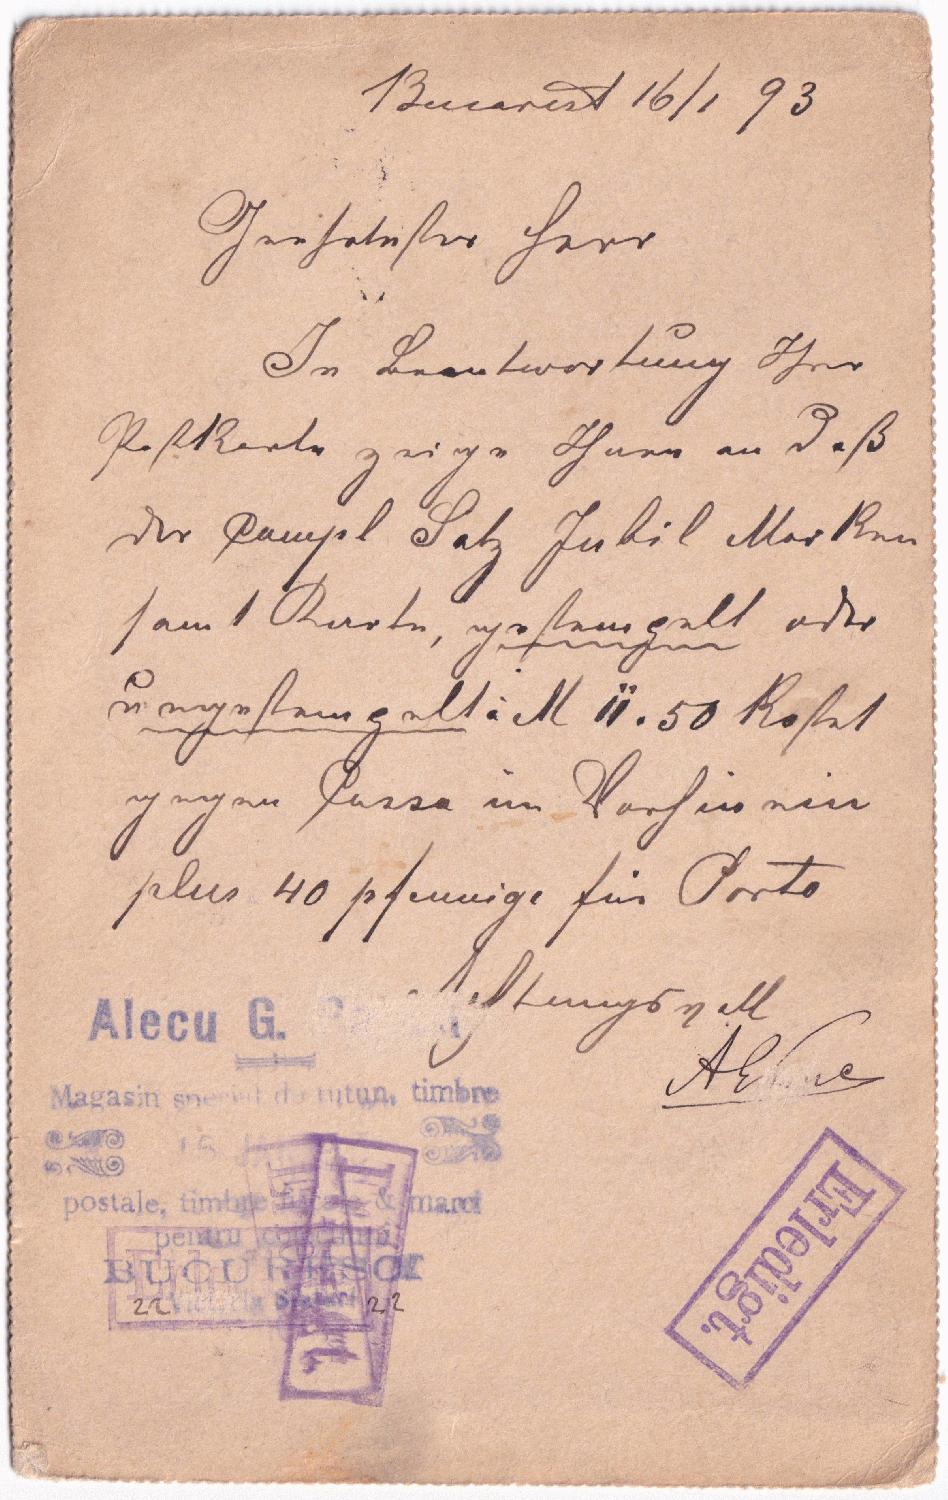 Bucarest 16/1 93
Geehrtester Herr
In Beantwortung Ihrer
Postkarte zeige Ihnen an daß
der Compl Satz Jubil Marken
samt Karte, gestempelt oder
ungestempelt à M 11.50 kostet
gegen Cassa im Vorhinein
plus 40 pfennige für Porto
Achtungsvoll
Alecu G.
Magasin special de tutun, timbre
postale, timbre fiscale & marci
pentru
BUCURESCI
22 Victoria 22
Erledigt.